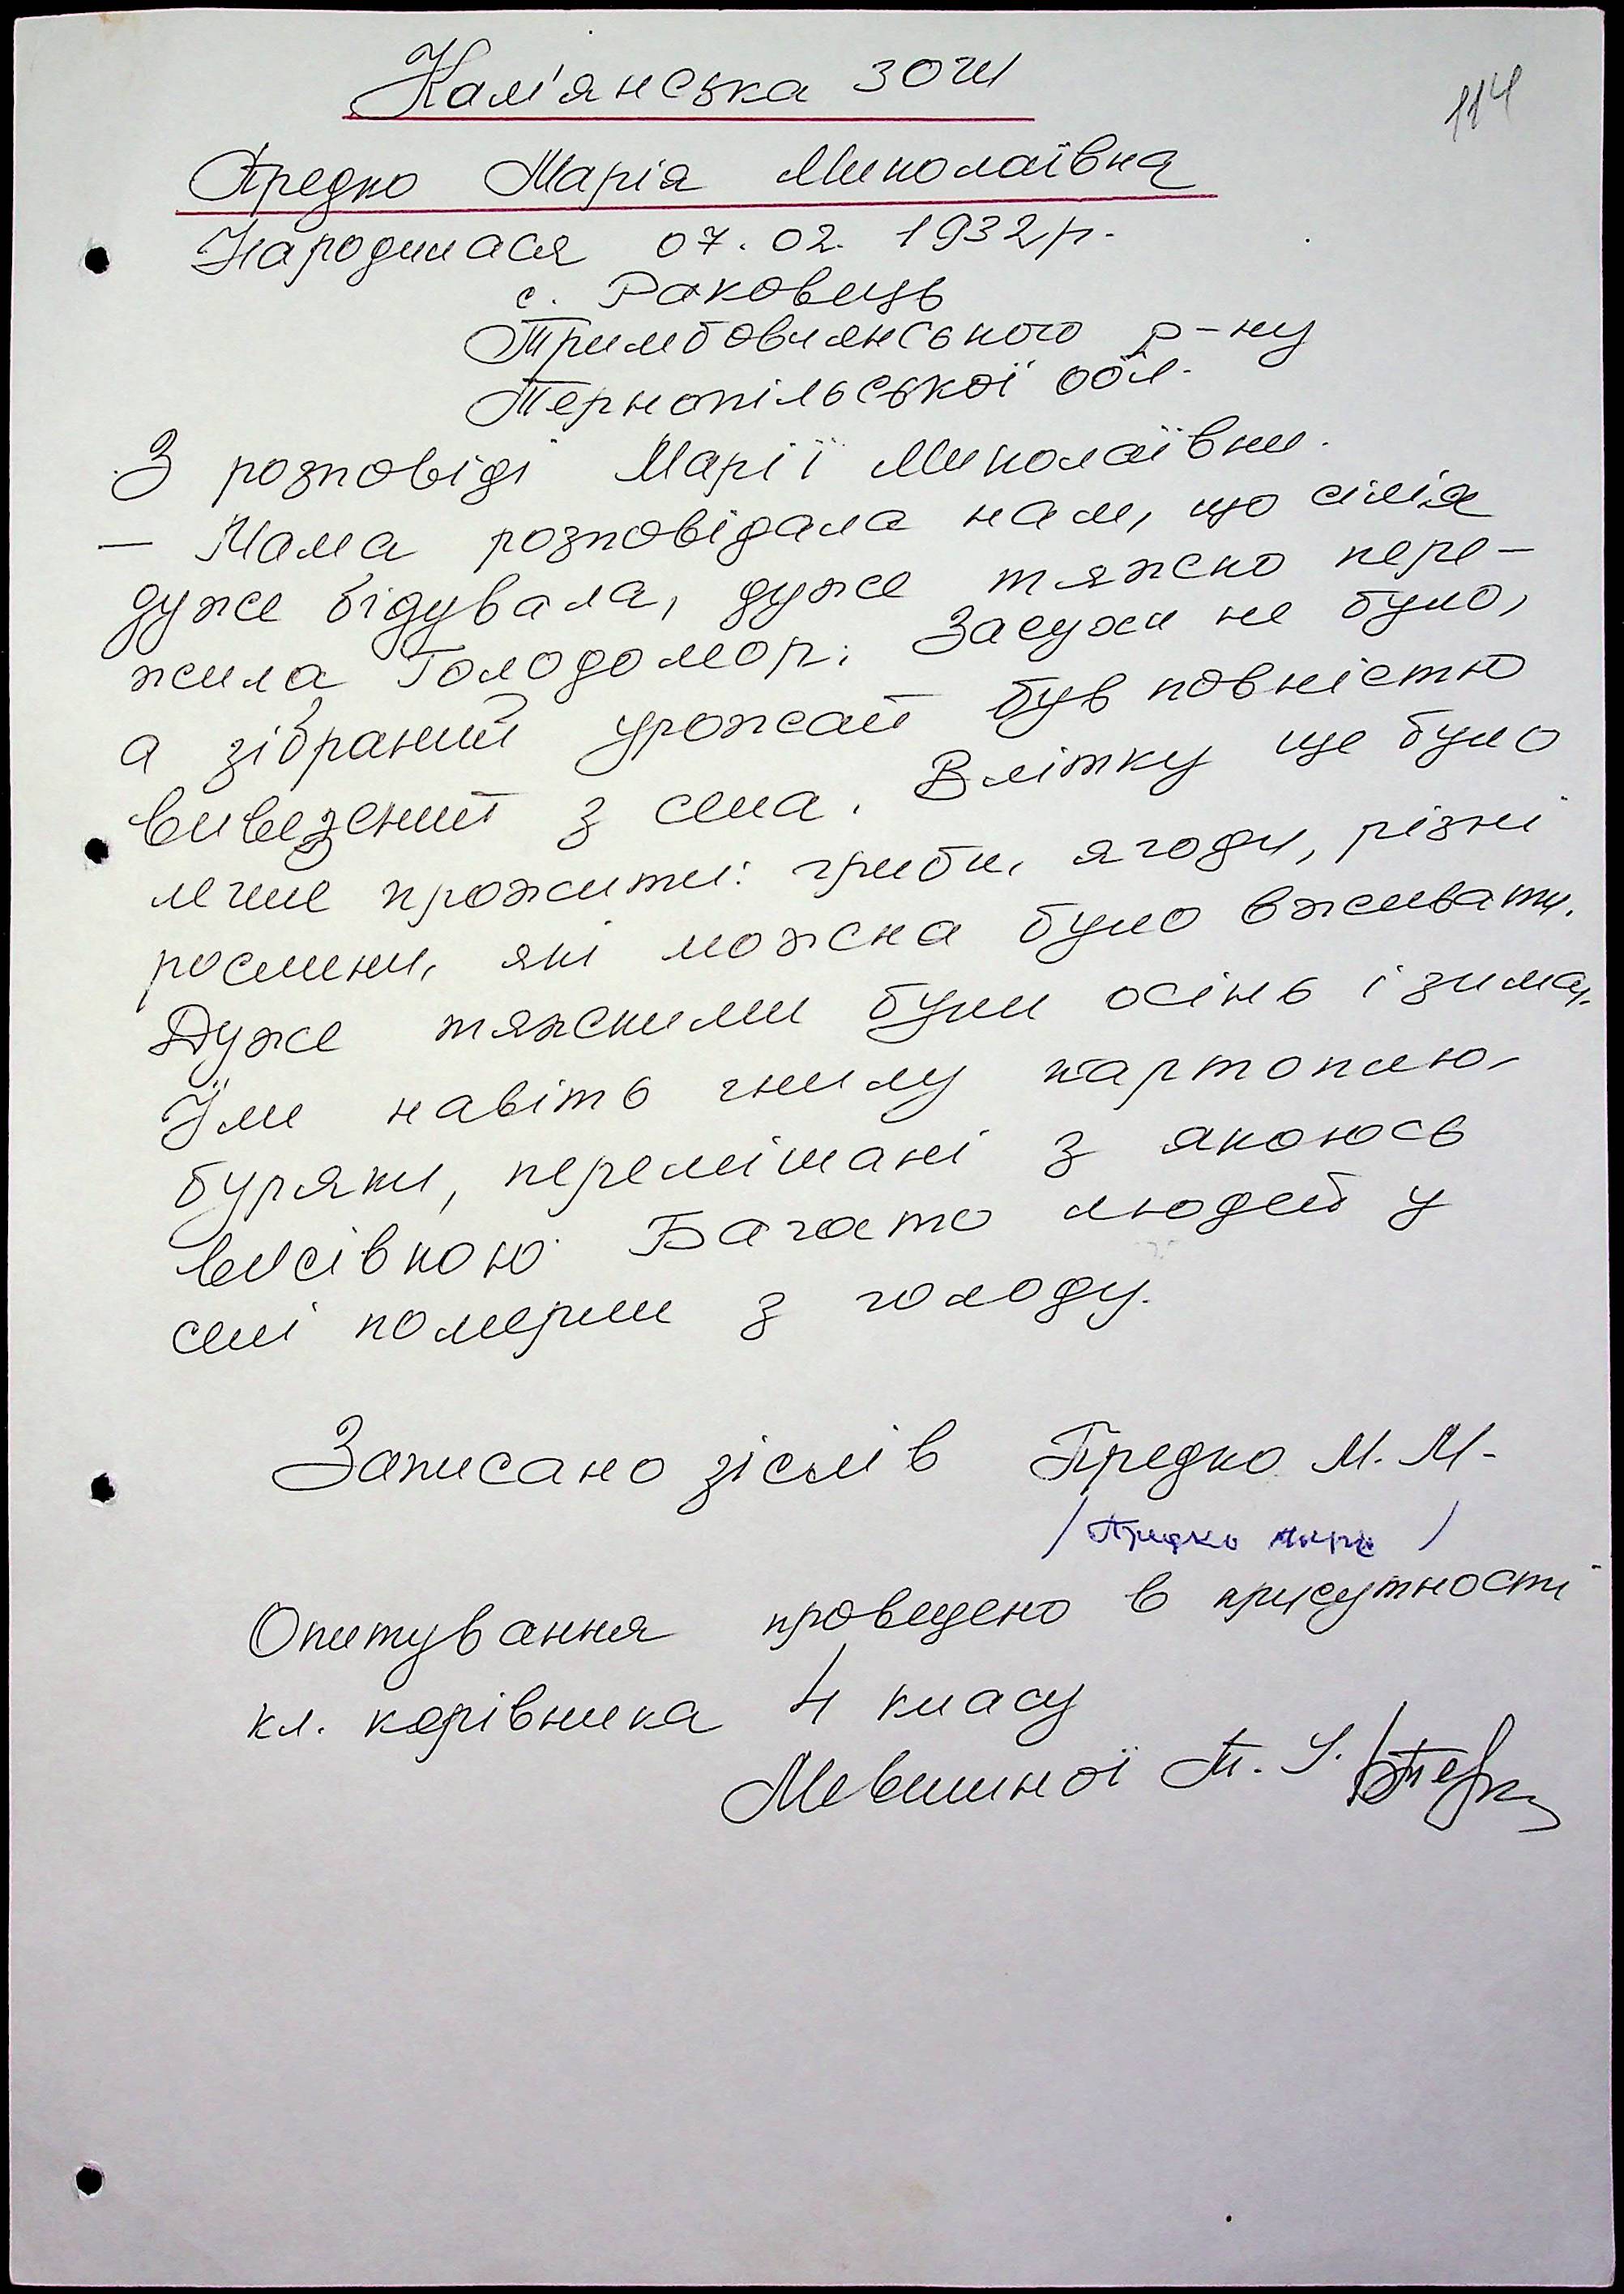 Кам'янська ЗОШ
114
Предко Марія Миколаївна
Народилася 07.02. 1932 р.
с. Раковець
Тримбовлянського р-ну
Тернопільської обл.
З розповіді Марії Миколаївни.
— Мама розповідала нам, що сім'я
дуже бідувала, дуже тяжко пере-
жила Голодомор. Засухи не було,
а зібраний урожай був повністю
вивезений з села. Влітку ще було
легше прожити: гриби, ягоди, різні
рослини, які можна було вживати.
Дуже тяжкими були осінь і зима.
Їли навіть гнилу картоплю,
буряки, перемішані з якоюсь
висівкою. Багато людей у
селі померли з голоду.
Записано зіслів Предко М. М.
/ Предко Марія /
Опитування проведено в присутності
кл. керівника 4 класу
Мевшиної Т. І.